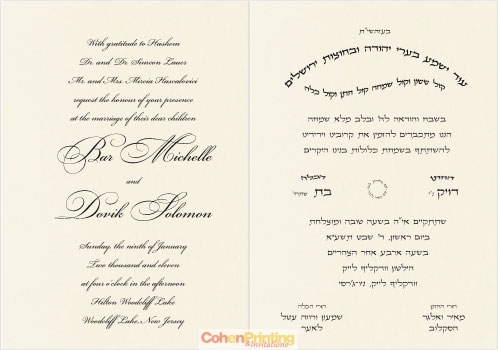 With gratitude to Hashem
Dr. and Dr. Simeon Lauer
Mr. and Mrs. Mircia Hascalovici
request the honour of your presence
at the marriage of their dear children
Bar Michelle
and
Dovik Solomon
Sunday, the ninth of January
Two thousand and eleven
at four o'clock in the afternoon
Hilton Woodcliff Lake
Woodcliff Lake, New Jersey
בעזהשי״ת
עוד ישמע בערי יהודה ובחוצות ירושלים
קול ששון וקול שמחה קול חתן וקול כלה
בשבח והודאה לה' ובלב מלא שמחה
הננו מתכבדים להזמין את קרובינו וידידינו
להשתתף בשמחת כלולות בנינו היקרים
החתן
דוויק
הכלה
בת
שתתקיים אי״ה בשעה טובה ומוצלחת
ביום ראשון, ד' שבט תשע״א
בשעה ארבע אחר הצהריים
הילטון וודקליף לייק
וודקליף לייק, ניו-ג'רסי
הורי החתן
מאיר ואלגר
הסקלוב
הורי הכלה
שמעון ורווה עטל
לאער
CohenPrinting
& Invitations